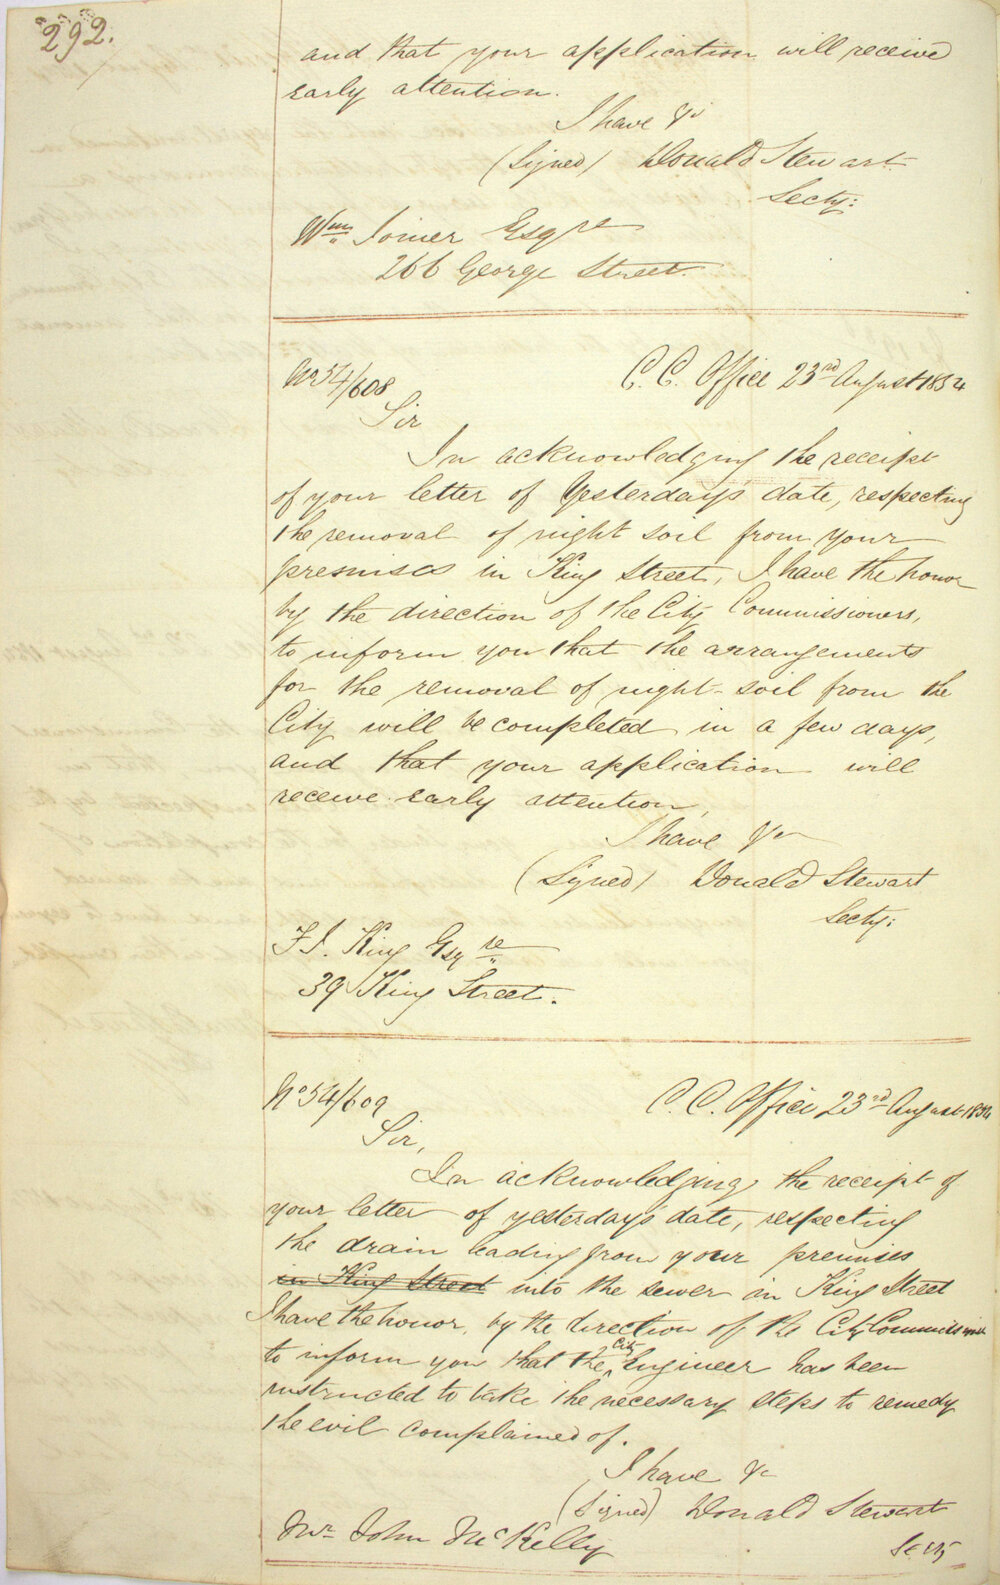 292.
and that your application will receive
early attention.
I have &c
(Signed) Donald Stewart
Secty:
Wm Joiner Esqre
266 George Street.
No 54/608
C. C. Office 23rd August 1854
Sir
In acknowledging the receipt
of your letter of Yesterday's date, respecting
the removal of night soil from your
premises in King Street, I have the honor
by the direction of the City Commissioners,
to inform you that the arrangements
for the removal of night-soil from the
City will be completed in a few days,
and that your application will
receive early attention,
I have &c
(Signed) Donald Stewart
Secty:
F. J. King Esqre
39 King Street.
No 54/609
C. C. Office 23rd August 1854
Sir,
In acknowledging the receipt of
your letter of yesterday's date, respecting
the drain leading from your premises
in King Street into the sewer in King Street
I have the honor, by the direction of the City Commissioners
to inform you that the City Engineer has been
instructed to take the necessary steps to remedy
the evil complained of.
I have &c
(Signed) Donald Stewart
Secty
Mr John McKelly